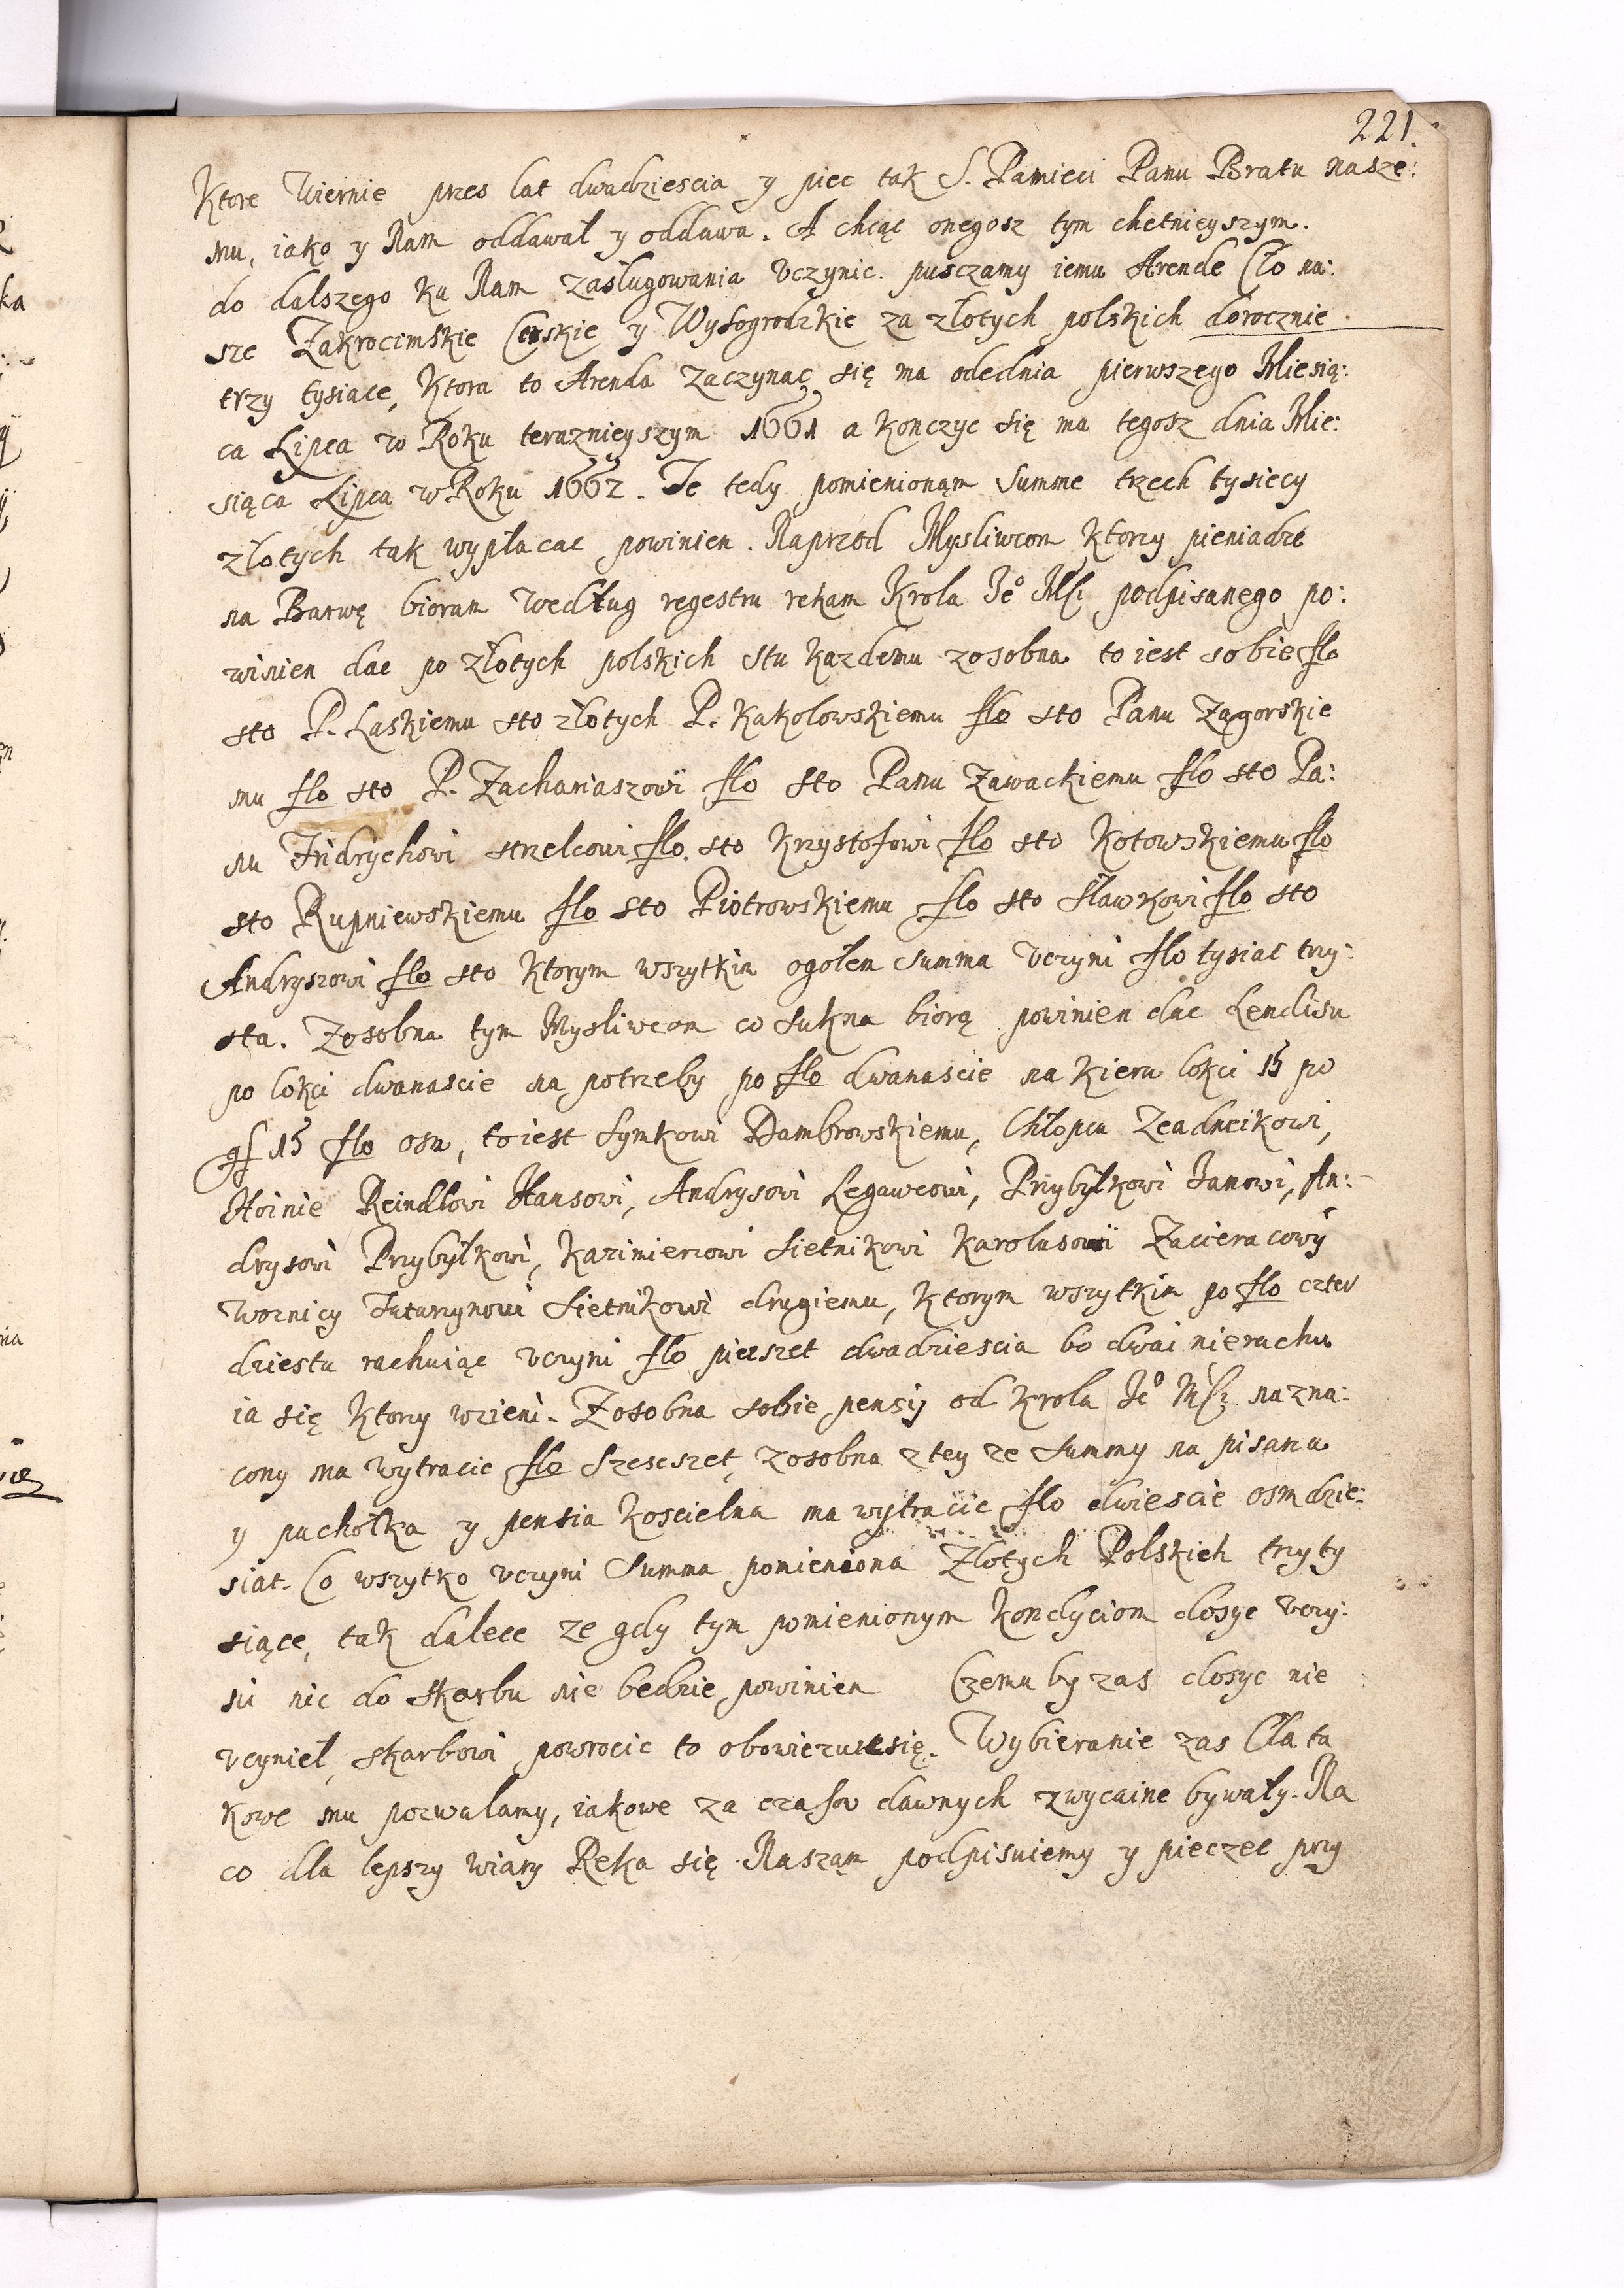 221.
Ktore Wiernie przes lat dwadziescia y piec tak S. Pamieci Panu Bratu nasze:
mu, iako y Nam oddawał y oddawa. A chcąc onegosz tym chetnieyszym.
do dalszego ku Nam zasługowania Vczynic. pusczamy iemu Arende Cło na:
sze Zakrocimskie Cerskie y Wysogrodzkie za złotych polskich dorocznie.
trzy tysiace, Ktora to Arenda zaczynac się ma odednia pierwszego Miesią:
ca Lipca w Roku teraznieyszym 1661 a konczyc się ma tegosz dnia Mie:
siąca Lipca w Roku 1662. Te tedy pomienionąm Summe trzech tysiecy
złotych tak wypłacac powinien. Naprzod Mysliwcom Ktorzy pieniadze
na Barwę bioram według regestru rekam Krola Je° Mści podpisanego po:
winien dac po złotych polskich stu każdemu zosobna to iest sobie flo
sto P. Laskiemu sto złotych P. Kakolowskiemu flo sto Panu Zagorskie
mu flo sto P. Zachariaszowi flo sto Panu Zawackiemu flo sto Pa:
nu Fridrychowi strelcowi flo. sto Krzystofowi flo sto Kotowskiemu flo
sto Rupniewskiemu flo sto Piotrowskiemu flo sto Sławkowi flo sto
Andryszowi flo sto Ktorym wszytkim ogołem Summa vczyni flo tysiac trzy:
sta. Zosobna tym Mysliwcom co sukna biorą powinien dac Lendisu
po lokci dwanascie na potrzeby po flo dwanascie na kieru lokci 15 po
gs 15 flo osm, to iest Symkowi Dambrowskiemu, Chłopcu Zeadneikowi,
Hoinie Reindlowi Hansowi, Andrysowi Legawcowi, Przybyłkowi Janowi, An:
drysowi Przybyłkowi, Kazimierzowi Sietnikowi Karolusowi Zacieracowy
Woznicy Tatarzynowi Sietnikowi drugiemu, Ktorym wszytkim po flo czter
dziestu rachuiąc vczyni flo piecset dwadziescia bo dwai nierachu
ia się Ktory wzieni. Zosobna sobie pensij od Krola Je° Mści nazna:
cony ma wytracic flo Szescset, zosobna z tey ze Summy na pisarza
y pachołka y pensia koscielna ma wytracic flo dwiescie osmdzie:
siat. Co wszytko vczyni Summa pomieniona Złotych Polskich trzy ty
siące, tak dalece ze gdy tym pomienionym Kondyciom dosyc vczy:
ni nic do skarbu nie bedzie powinien Czemu by zas dosyc nie
vcyniel, skarbowi powrocic to obowiezuie się. Wybieranie zas Cla ta
kowe mu pozwalamy, iakowe za czasow dawnych zwycaine bywały. Na
co dla lepszy wiary Reka się Nasząm podpisuiemy y pieczec przy